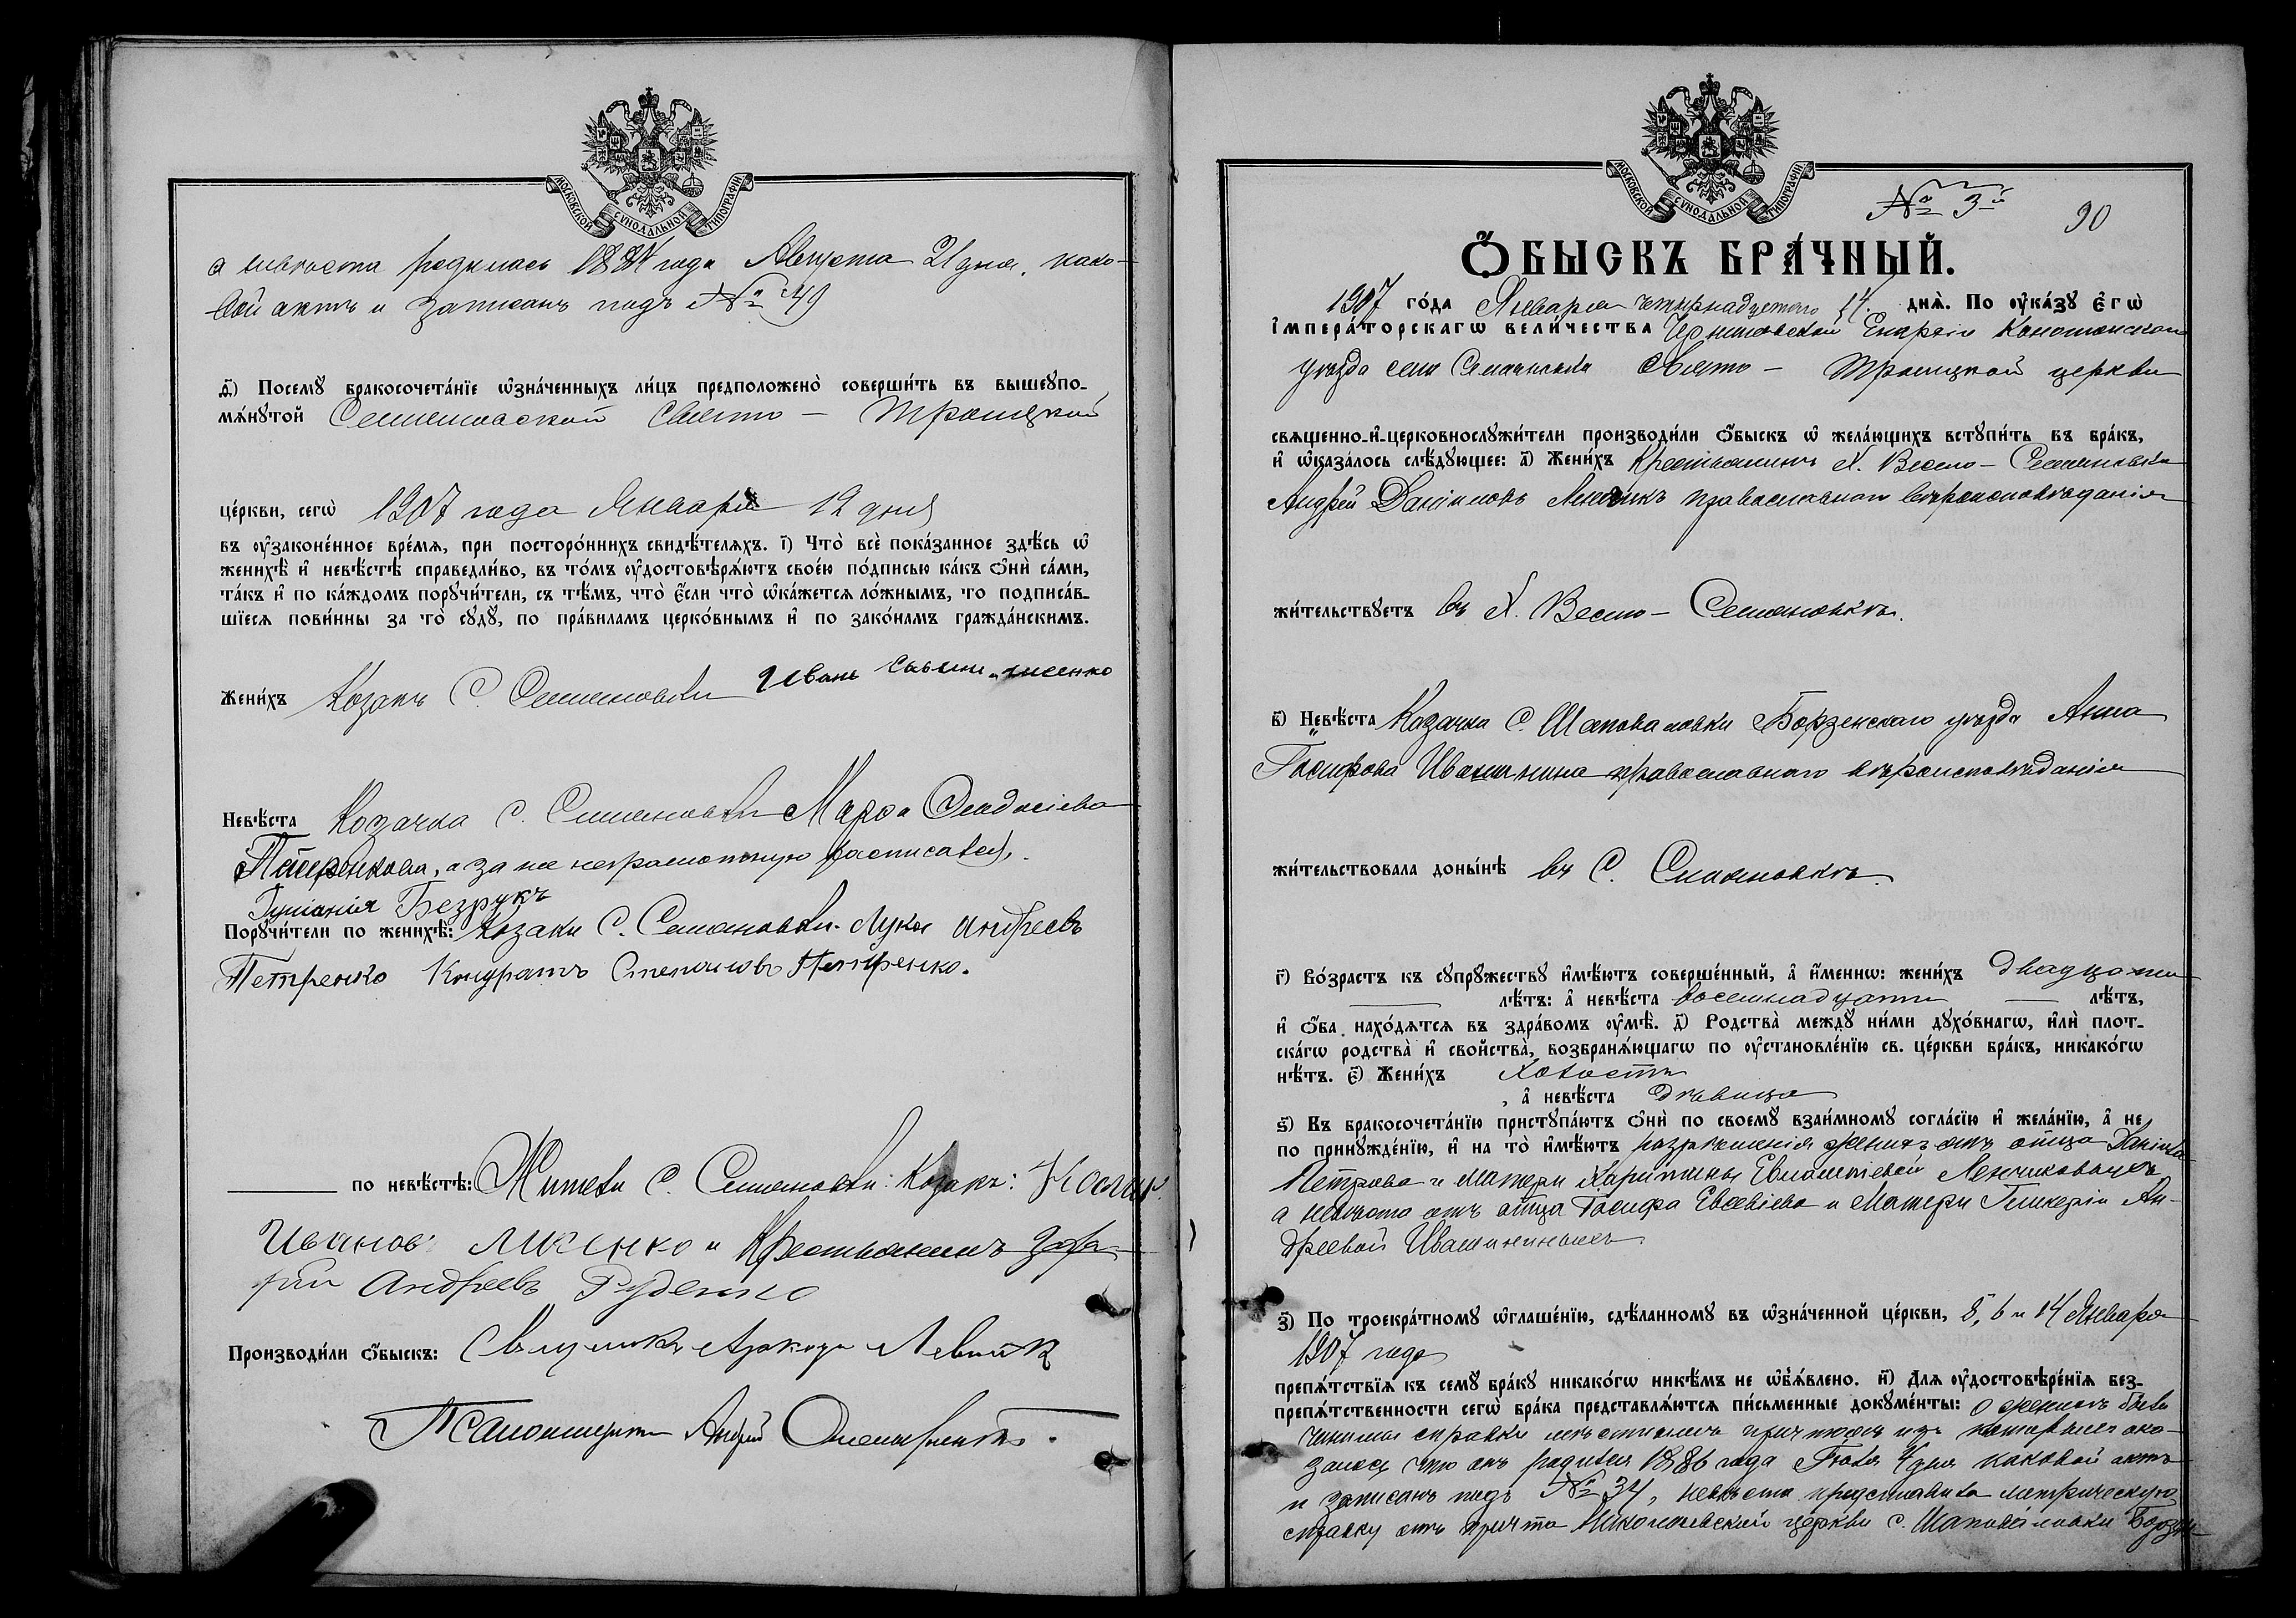 МОСКОВСКОЙ СѴНОДАЛЬНОЙ ТИПОГРАФІИ
а невѣста родилась 188 года Августа 21 дня, како-
вой актъ и записанъ подъ № 49
д҃і) Посемꙋ бракосочета́нїе ѡ҆зна́ченныхъ ли́цъ предположено̀ соверши́ть въ вышеꙋпо-
мѧ́нꙋтой Семеновской Свято — Троицкой
це́ркви, сегѡ̀ 1907 года Января 12 дня
въ ᲂу҆законе́нное вре́мѧ, при посторо́ннихъ свидѣ́телѧхъ. і҃) Что̀ всѐ пока́занное здѣ́сь ѡ҆
женихѣ̀ и҆ невѣ́стѣ справедли́во, въ то́мъ ᲂу҆достовѣрѧ́ютъ свое́ю по́дписью ка́къ ѻ҆нѝ са́ми,
та́къ и҆ по ка́ждомъ порꙋчи́тели, съ тѣ́мъ, что̀ є҆́сли что̀ ѡ҆ка́жетсѧ ло́жнымъ, то подписа́в-
шїесѧ пови́нны за то̀ сꙋдꙋ̀, по пра́виламъ церко́внымъ и҆ по зако́намъ гражда́нскимъ.
Жени́хъ Козакъ С. Семеновки Иванъ
Невѣ́ста Козачка С. Семеновки Марфа Феодосіева
, а за не неграмотную расписался
Безрукъ
Порꙋчи́тели по женихѣ̀: Козаки С. Семеновки. Лука Андреевъ
Петренко Кондратъ Степановъ Петренко.
по невѣ́стѣ: Жители С. Семеновки: Козакъ:
Ивановъ Лисенко и Крестьянинъ Заха-
рій Андреевъ Руденко
Производи́ли ѻ҆́быскъ: Священникъ Левицк
Псаломщикъ Андрей
МОСКОВСКОЙ СѴНОДАЛЬНОЙ ТИПОГРАФІИ
№ 3й
90
Ѻ҆́БЫСКЪ БРА́ЧНЫЙ.
1907 го́да Января четырнадцатаго 14. днѧ̀. По ᲂу҆ка́зꙋ Є҆гѡ̀
І҆мпера́торскагѡ вели́чества Черниговской Епархіи Конотопскаго
уѣзда села Семеновки Свято — Троицкой церкви
свѧщенно-и҆-церковнослꙋжи́тели производи́ли ѻ҆́быскъ ѡ҆ жела́ющихъ встꙋпи́ть въ бра́къ,
и҆ ѡ҆каза́лось слѣ́дꙋющее: а҃) Жени́хъ Крестьянинъ Х. Весело — Семеновки
Андрей Даніиловъ православнаго вѣроисповѣданія
жи́тельствꙋетъ въ Х. Весело — Семеновкѣ.
в҃) Невѣ́ста Козачка С. Шаповаловки Борзенскаго уѣзда Анна
Іосифова Ивашинина православнаго вѣроисповѣданія
жи́тельствовала доны́нѣ въ С. Семеновкѣ.
г҃) Во́зрастъ къ сꙋпрꙋ́жествꙋ и҆мѣ́ютъ соверше́нный, а҆ и҆́меннѡ: жени́хъ двадцати
лѣ́тъ: а҆ невѣ́ста восемнадцати лѣ́тъ,
и҆ ѻ҆́ба нахо́дѧтсѧ въ здра́вомъ ᲂу҆мѣ̀. д҃) Родства̀ междꙋ̀ ни́ми дꙋхо́внагѡ, и҆лѝ плот-
ска́гѡ родства̀ и҆ свойства̀, возбранѧ́ющагѡ по ᲂу҆становле́нїю св. це́ркви бра́къ, никако́гѡ
нѣ́тъ. є҃) Жени́хъ холостъ
, а҆ невѣ́ста дѣвица
ѕ҃) Въ бракосочета́нїю пристꙋпа́ютъ ѻ҆нѝ по своемꙋ̀ взаи́мномꙋ согла́сїю и҆ жела́нїю, а҆ не
по принꙋжде́нїю, и҆ на то̀ и҆мѣ́ютъ разрѣшенія женихъ отъ отца Даніила
Петрова и матери Харитины
а невѣста отъ отца Іосифа Евсевіева и матери Гликеріи Ан-
дреевой Ивашининыхъ
з҃) По троекра́тномꙋ ѡ҆глаше́нїю, сдѣ́ланномꙋ въ ѡ҆зна́ченной це́ркви, 6 и 14 Января
1907 года
препѧ́тствїѧ къ семꙋ̀ бра́кꙋ никако́гѡ никѣ́мъ не ѡ҆б̾ѧ́влено. и҃) Длѧ ᲂу҆достовѣре́нїѧ без-
препѧ́тственности сегѡ̀ бра́ка представлѧ́ютсѧ пи́сьменные докꙋме́нты: о женихѣ была
чинима справка мѣстнымъ причтомъ изъ которыхъ ока-
залось что онъ родился 1886 года Іюля 4 дня каковой актъ
и записанъ подъ № 34, невѣста представила метрическую
справку отъ причта Николаевской церкви с. Шаповаловки Борзен-